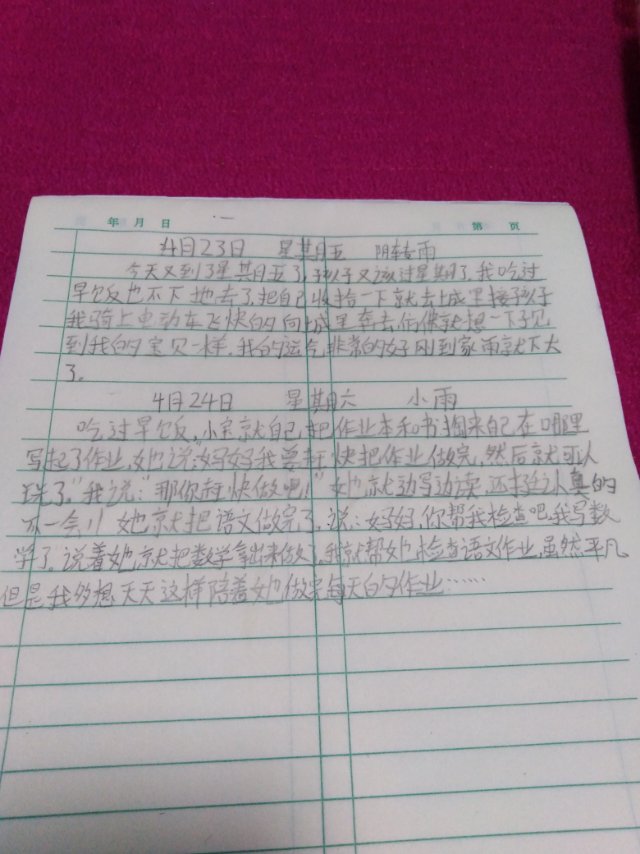 年 月 日 第 页
4月23日 星期五 阴转雨
今天又到了星期五了,孩子又该过星期了,我吃过
早饭也不下地去了,把自己收拾一下就去上城里接孩子
我骑上电动车飞快的向城里奔去,仿佛就想一下子见
到我的宝贝一样,我的运气非常的好刚到家雨就下大
了。
4月24日 星期六 小雨
吃过早饭,小宝就自己把作业本和书掏来自己在哪里
写起了作业,她说:"妈妈我要赶快把作业做完,然后就可以
玩了,"我说:"那你赶快做吧!"她就动写动读,还挺认真的
不一会儿她就把语文做完了,说:妈妈,你帮我检查吧,我写数
学了,说着她就把数学拿出来做了,我就帮她检查语文作业,虽然平凡
但是,我多想天天这样陪着她做完每天的作业……